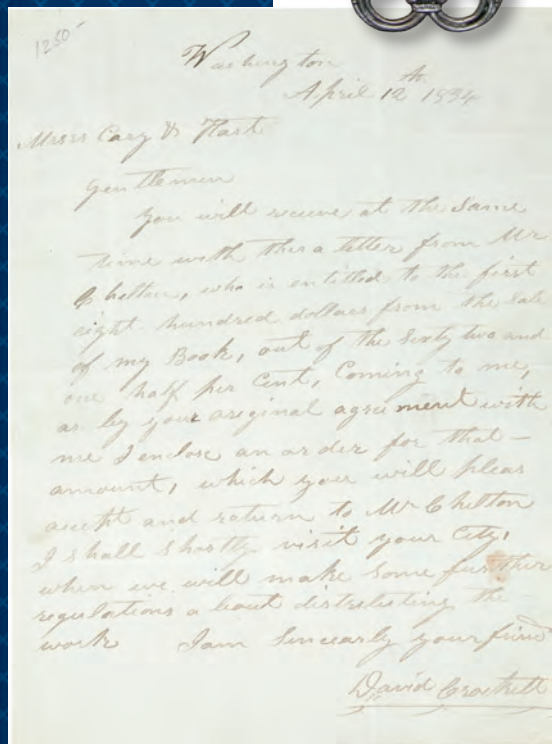 1250-
Washington
April 12th 1834
Messrs Cary & Hart
Gentlemen
You will receive at the Same
time with this a letter from Mr
Chilton, who is entitled to the first
eight hundred dollars from the sale
of my Book, out of the Sixty two and
one half per Cent, Coming to me,
as by your original agreement with
me I enclose an order for that –
amount, which you will pleas
accept and return to Mr Chilton
I shall shortly visit your City,
when we will make Some further
regulations about distributing the
work I am Sincearly your friend
David Crockett